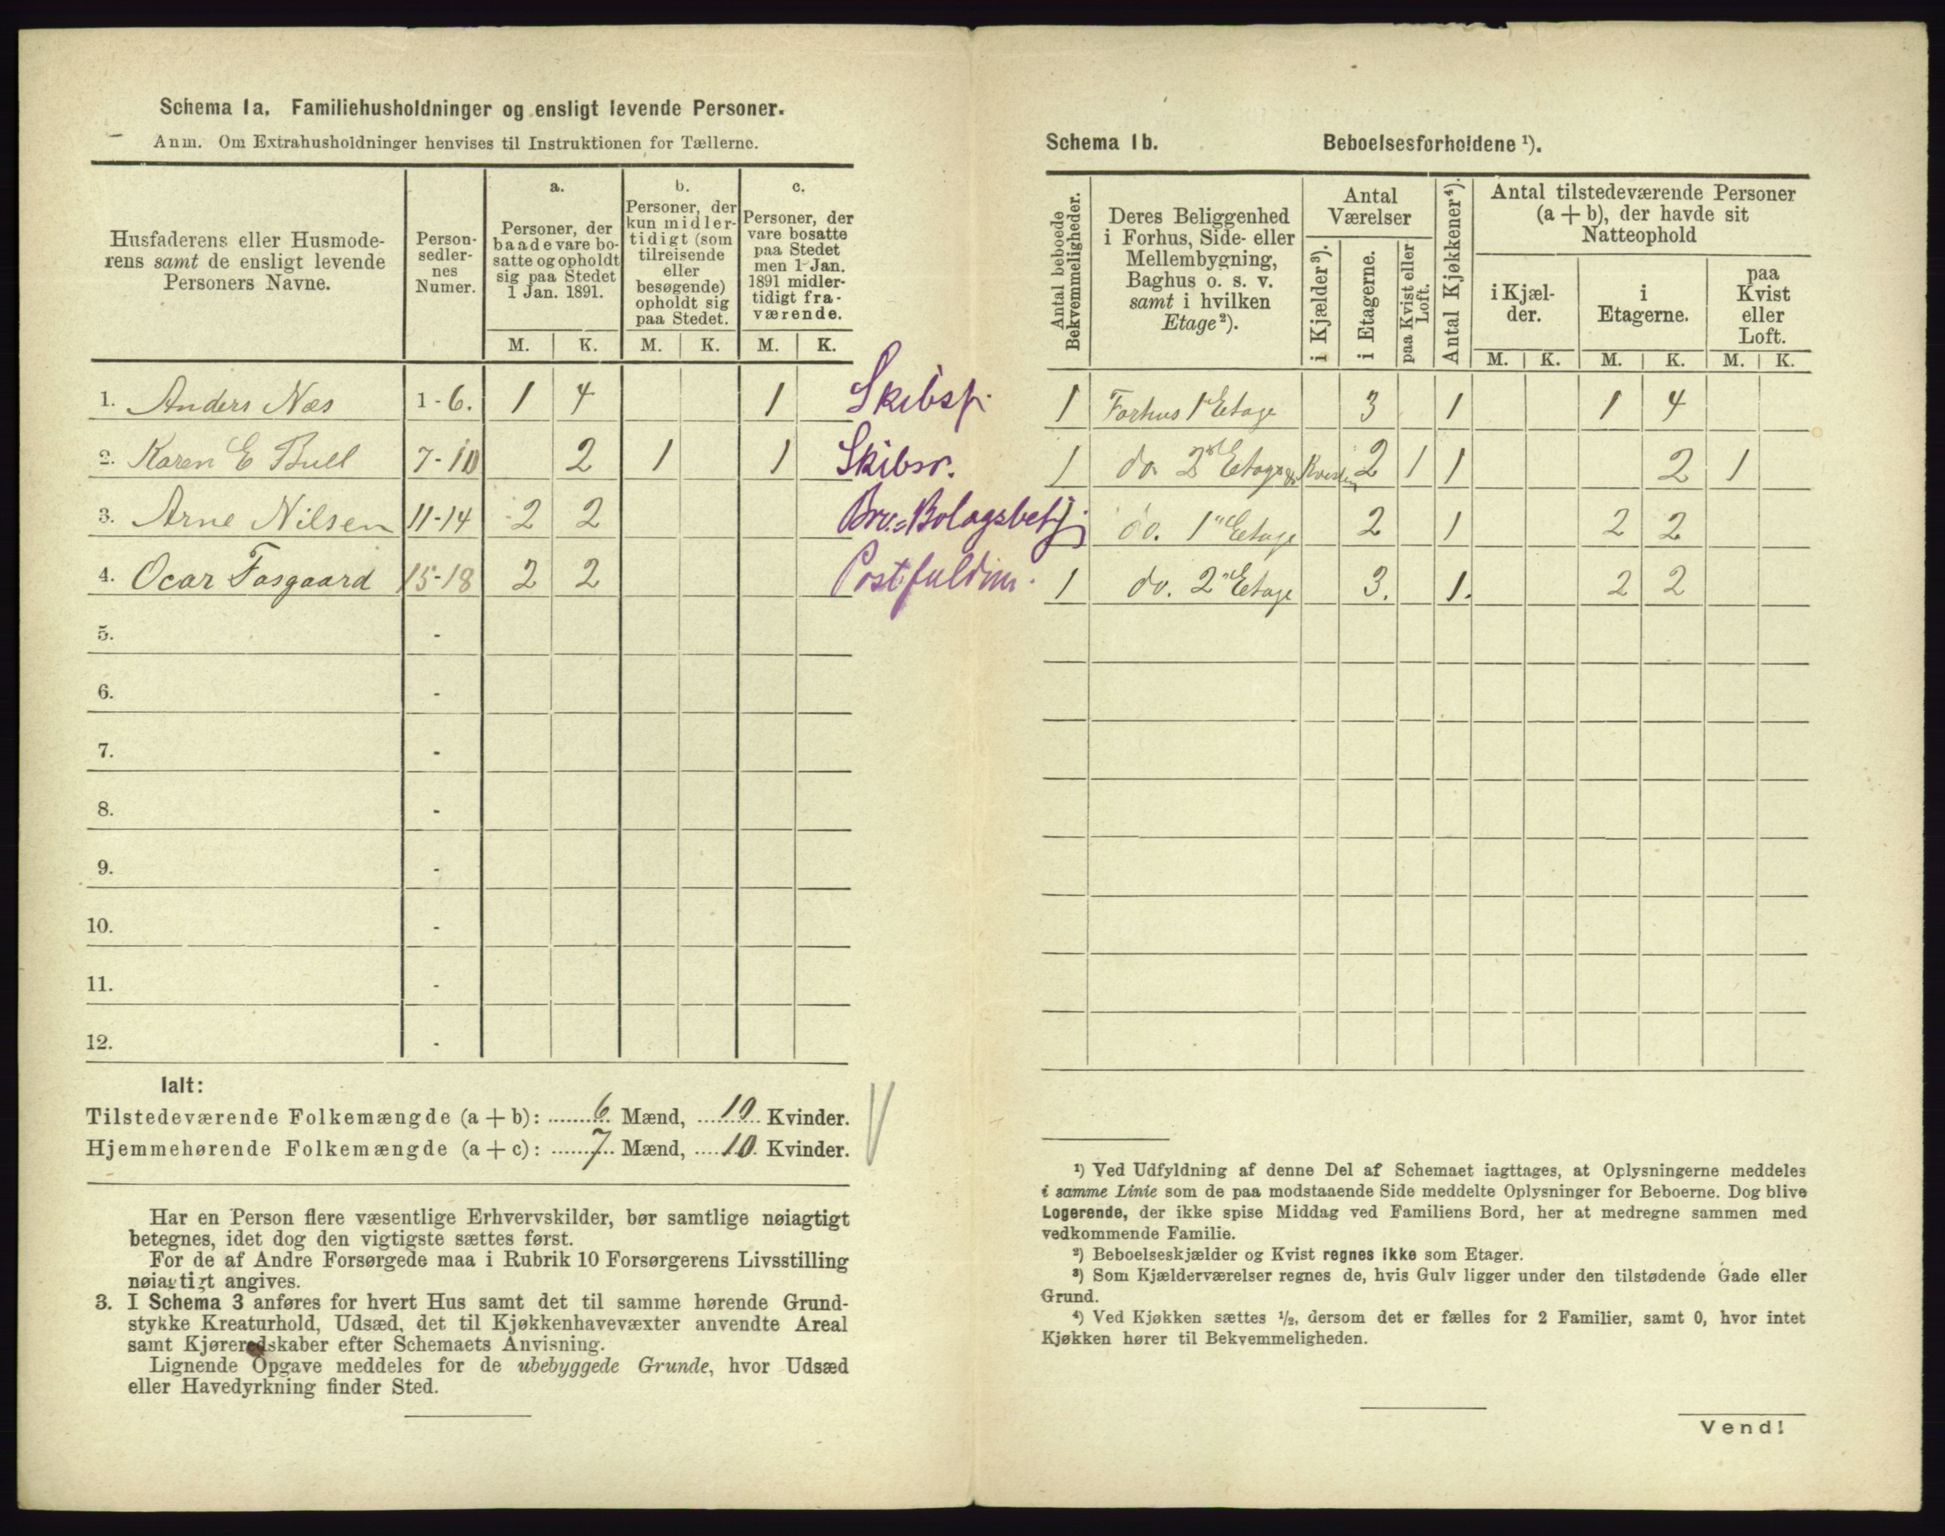 Schema 1a. Familiehusholdninger og ensligt levende Personer.
Anm. Om Extrahusholdninger henvises til Instruktionen for Tællerne.
Husfaderens eller Husmoderens samt de ensligt levende Personers Navne.
Personsedlernes Numer.
a. Personer, der baade vare bosatte og opholdt sig paa Stedet 1 Jan. 1891.
b. Personer, der kun midlertidigt (som tilreisende eller besøgende) opholdt sig paa Stedet.
c. Personer, der vare bosatte paa Stedet men 1 Jan. 1891 midlertidigt fraværende.
M. K. M. K. M. K.
1. Anders Næs 1-6. 1 4 1 Skibsf.
2. Karen E Bull 7-10 2 1 1 Skibsr.
3. Arne Nilsen 11-14 2 2
4. Ocar Fosgaard 15-18 2 2
5. -
6. -
7. -
8. -
9. -
10. -
11. -
12. -
Ialt:
Tilstedeværende Folkemængde (a + b): 6 Mænd, 10 Kvinder.
Hjemmehørende Folkemængde (a + c): 7 Mænd, 10 Kvinder.
Har en Person flere væsentlige Erhvervskilder, bør samtlige nøiagtigt
betegnes, idet dog den vigtigste sættes først.
For de af Andre Forsørgede maa i Rubrik 10 Forsørgerens Livsstilling
nøiagtigt angives.
3. I Schema 3 anføres for hvert Hus samt det til samme hørende Grund-
stykke Kreaturhold, Udsæd, det til Kjøkkenhavevæxter anvendte Areal
samt Kjøreredskaber efter Schemaets Anvisning.
Lignende Opgave meddeles for de ubebyggede Grunde, hvor Udsæd
eller Havedyrkning finder Sted.
Schema 1b. Beboelsesforholdene ¹).
Antal beboede Bekvemmeligheder.
Deres Beliggenhed i Forhus, Side- eller Mellembygning, Baghus o. s. v. samt i hvilken Etage²).
Antal Værelser
i Kjælder³).
i Etagerne.
paa Kvist eller Loft.
Antal Kjøkkener⁴).
Antal tilstedeværende Personer (a + b), der havde sit Natteophold
i Kjælder.
i Etagerne.
paa Kvist eller Loft.
M. K. M. K. M. K.
1 Forhus 1 Etage 3 1 1 4
1 do. 2 Etage 2 1 1 2 1
do. 1 Etage 2 1 2 2
1 do. 2 Etage 3. 1. 2 2
¹) Ved Udfyldning af denne Del af Schemaet iagttages, at Oplysningerne meddeles
i samme Linie som de paa modstaaende Side meddelte Oplysninger for Beboerne. Dog blive
Logerende, der ikke spise Middag ved Familiens Bord, her at medregne sammen med
vedkommende Familie.
²) Beboelseskjælder og Kvist regnes ikke som Etager.
³) Som Kjælderværelser regnes de, hvis Gulv ligger under den tilstødende Gade eller
Grund.
⁴) Ved Kjøkken sættes ½, dersom det er fælles for 2 Familier, samt 0, hvor intet
Kjøkken hører til Bekvemmeligheden.
Vend!